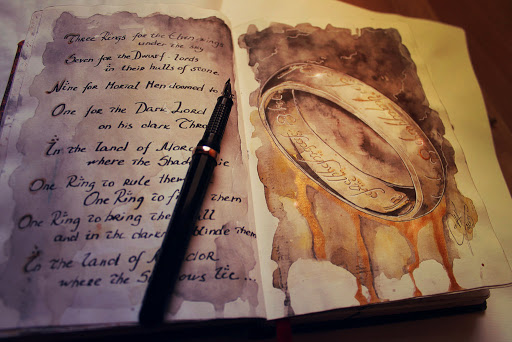 "Three Rings for the Elven kings
under the sky
Seven for the Dwarf-lords
in their halls of stone
Nine for Mortal Men doomed to
One for the Dark Lord
on his dark
In the land of
where the
One Ring to rule them
One Ring to them
One Ring to bring
and in the them
In the land of
where the Shadows lie...